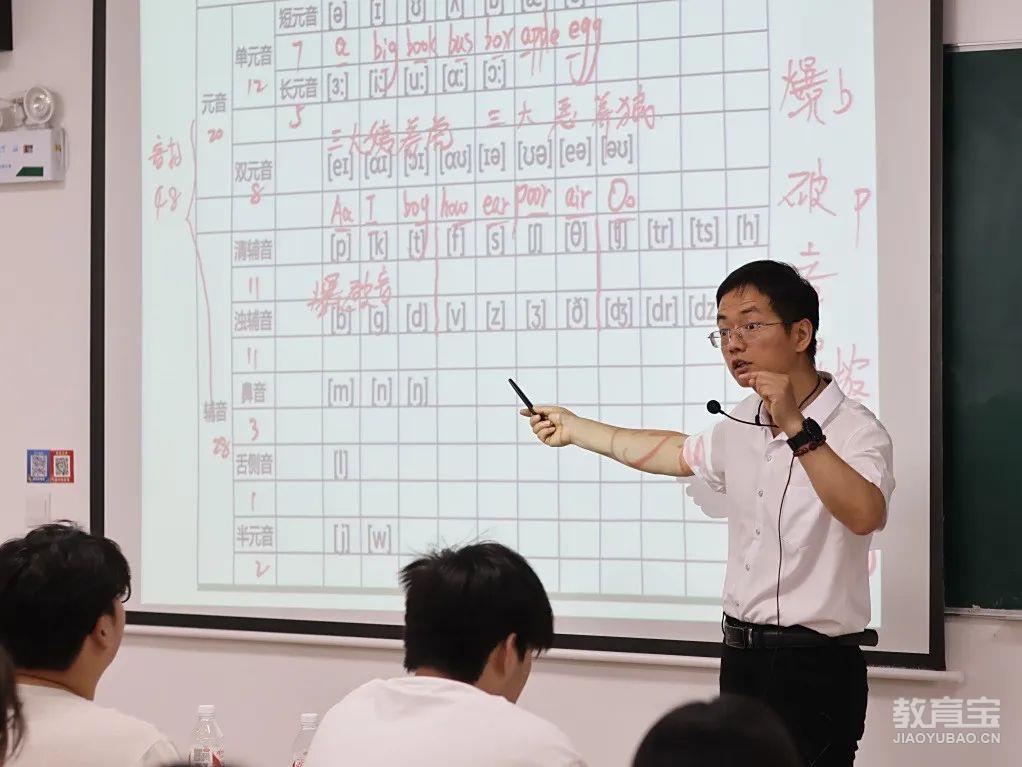 短元音 [ə] [ɪ] [ʊ] [ʌ]
单元音 7 a big book bus box apple egg
12 长元音 [ɜ:] [i:] [u:] [ɑ:] [ɔ:]
元音 5
20 三大 三大恶
音标 双元音 [eɪ] [aɪ] [ɔɪ] [aʊ] [ɪə] [ʊə] [eə] [əʊ]
48 8 Aa I boy how ear poor air O
清辅音 [p] [k] [t] [f] [s] [ʃ] [θ] [ʧ] [tr] [ts] [h]
11 爆破音
浊辅音 [b] [g] [d] [v] [z] [ʒ] [ð] [ʤ] [dr] [dz
11
鼻音 [m] [n] [ŋ]
辅音 3
28 舌侧音 [l]
1
半元音 [j] [w]
2
爆 b
破 p
音
教育宝
JIAOYUBAO.CN